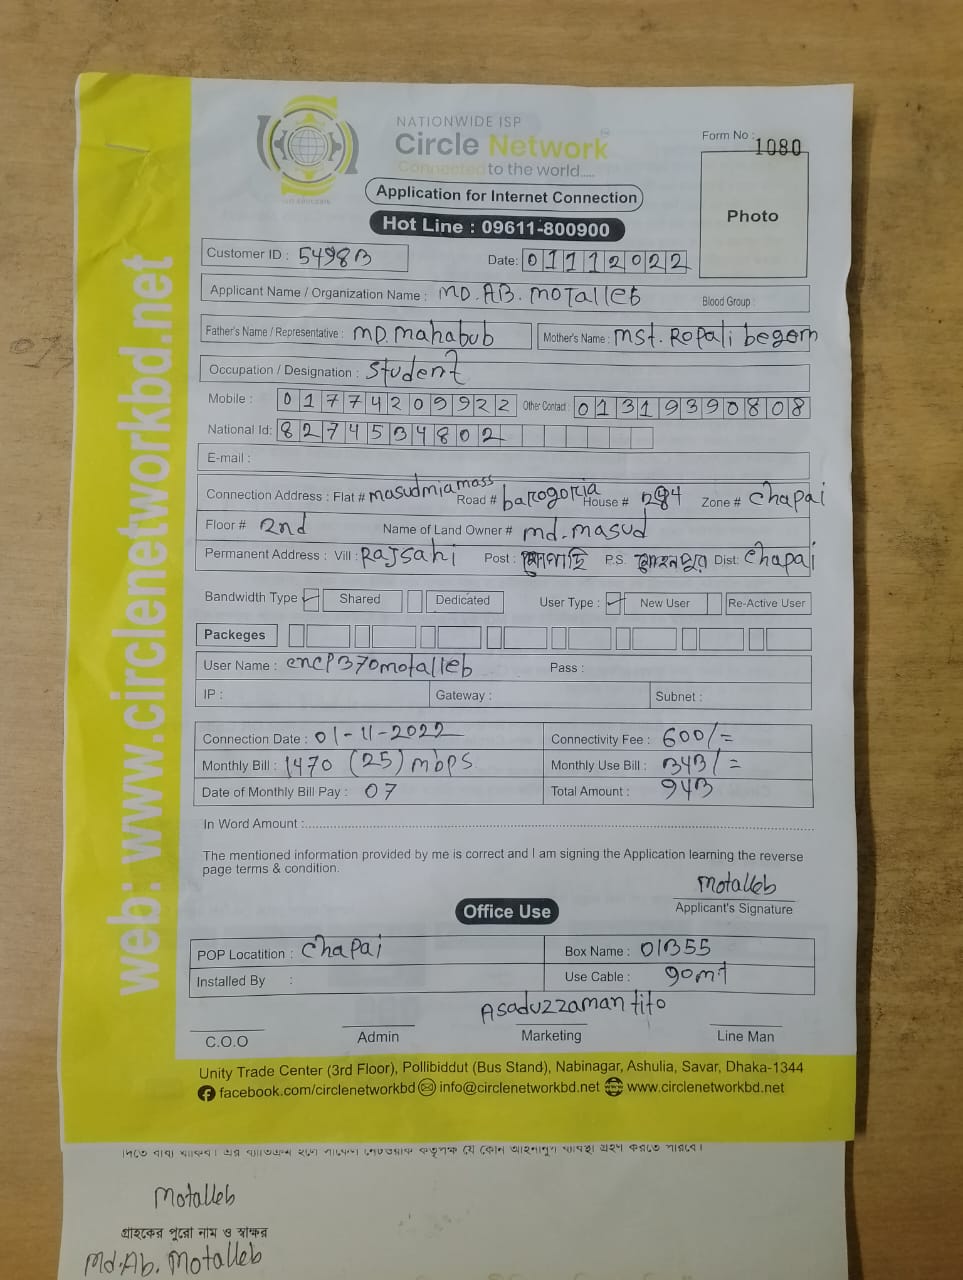 NATIONWIDE ISP
Circle Network
Connected to the world.....
Form No : 1080
Application for Internet Connection
Hot Line : 09611-800900
Photo
Customer ID : 54983
Date: 01112022
Applicant Name / Organization Name : MD. AB. MOTalleb Blood Group :
Father's Name / Representative : MD. Mahabub Mother's Name : Mst. Ropali begom
Occupation / Designation : Student
Mobile : 01774209922 Other Contact : 01319390808
National Id: 8274534802
E-mail :
Connection Address : Flat # masudmiamass Road # barogoria House # 284 Zone # Chapai
Floor # 2nd Name of Land Owner # md. masud
Permanent Address : Vill : Rajsahi Post : P.S. Dist: Chapai
Bandwidth Type Shared Dedicated User Type : New User Re-Active User
Packeges
User Name : encp370motalleb Pass :
IP : Gateway : Subnet :
Connection Date : 01-11-2022 Connectivity Fee : 600/=
Monthly Bill : 1470 (25) mbps Monthly Use Bill : 343/=
Date of Monthly Bill Pay : 07 Total Amount : 943
In Word Amount :
The mentioned information provided by me is correct and I am signing the Application learning the reverse
page terms & condition.
Motalleb
Applicant's Signature
Office Use
POP Locatition : Chapai Box Name : 01355
Installed By : Use Cable : 90mt
Asaduzzaman tito
C.O.O Admin Marketing Line Man
Unity Trade Center (3rd Floor), Pollibiddut (Bus Stand), Nabinagar, Ashulia, Savar, Dhaka-1344
facebook.com/circlenetworkbd info@circlenetworkbd.net www.circlenetworkbd.net
web: www.circlenetworkbd.net
Motalleb
গ্রাহকের পুরো নাম ও স্বাক্ষর
Md. Ab. Motalleb